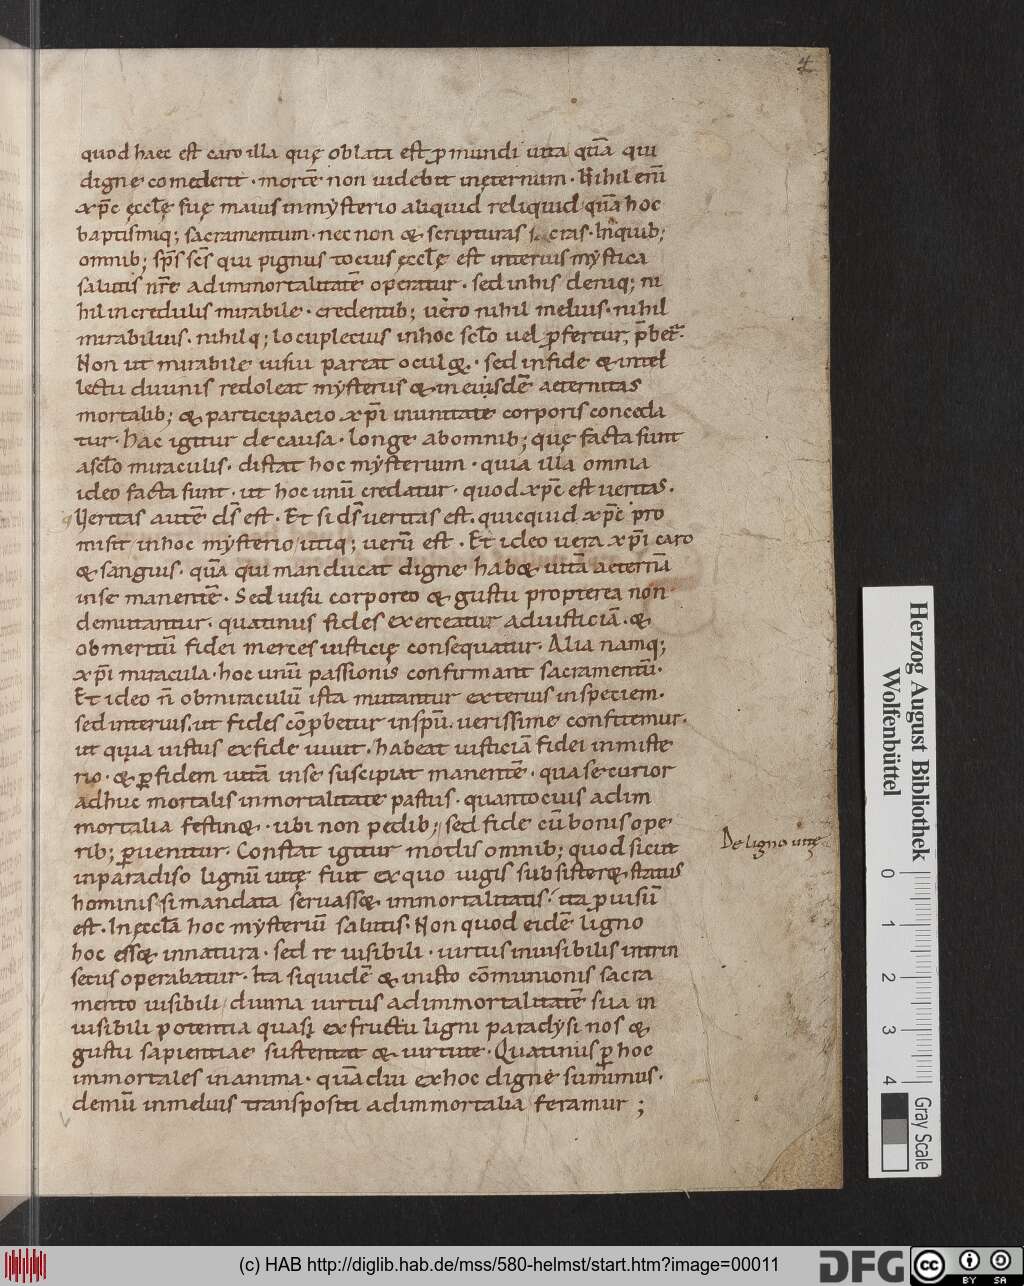 4
quod haec est caro illa quę oblata est ꝓ mundi uita quā qui
digne comederit · mortē non uidebit inęternum · Nihil eni̅
xp̅c ęccl̅ę suę maius in mẏsterio aliquid reliquid quā hoc
baptismiq; sacramentum · nec non & scripturas sacras · In quib;
omnib; sp̅s sc̅s qui pignus tocius ęccl̅ę est interius mẏstica
salutis nr̅e ad immortalitatē operatur · sed in his deniq; ni
hil incredulis mirabile · credentib; uero nihil melius · nihil
mirabilius · nihilq; locupletius in hoc scl̅o uel ꝓfertur, p̅bet᷑ ·
Non ut mirabile uisui pareat ocul · sed in fide & intel
lectu diuinis redoleat mẏsteriis & in eiusdē aeternitas
mortalib; & participacio xp̅i in unitate corporis conceda
tur · hac igitur de causa · longe ab omnib; quę facta sunt
a scl̅o miraculis · distat hoc mẏsterium · quia illa omnia
ideo facta sunt · ut hoc unū credatur · quod xp̅c est ueritas ·
Ueritas autē d̅s est · Et si d̅s ueritas est · quicquid xp̅c pro
misit in hoc mẏsterio utiq; uerū est · Et ideo uera xp̅i caro
& sanguis · quā qui manducat digne hab& uitā aeternā
in se manentē · Sed uisu corporeo & gustu propterea non
demutantur · quatinus fides exerceatur ad iusticiā · &
ob meritū fidei merces iusticię consequatur · Alia namq;
xp̅i miracula · hoc unū passionis confirmant sacramentū ·
Et ideo n̅ ob miraculū ista mutantur exterius in speciem ·
sed interius · ut fides cōꝓbetur in sp̅u · uerissime confitemur ·
ut quia uistus ex fide uiuit · habeat iusticiā fidei in miste
rio · & ꝑ fidem uitā in se suscipiat manentē · qua securior
adhuc mortalis inmortalitate pastus · quantocius ad im
mortalia festin& · ubi non pedib; sed fide cū bonis ope
rib; ꝑuenitur · Constat igitur modis omnib; quod sicut
in paradiso lignū uitę fuit ex quo uigis subsister& status
hominis · si mandata seruass& · immortalitatis · ita ꝓuisū
est · In ęccl̅a hoc mẏsteriū salutis · Non quod eidē ligno
hoc ess& in natura · sed re uisibili · uirtus inuisibilis intrin
secus operabatur · Ita siquidē & in isto cōmunionis sacra
mento uisibili diuina uirtus ad immortalitatē sua in
uisibili potentia quasi ex fructu ligni paradẏsi nos &
gustu sapientiae sustentat & uirtute · Quatinus ꝑ hoc
immortales in anima · quādiu ex hoc digne sumimus ·
demū in melius transpositi ad immortalia feramur ;
De ligno uitę
Herzog August Bibliothek
Wolfenbüttel
0 1 2 3 4
Gray Scale
(c) HAB http://diglib.hab.de/mss/580-helmst/start.htm?image=00011
DFG
cc BY SA